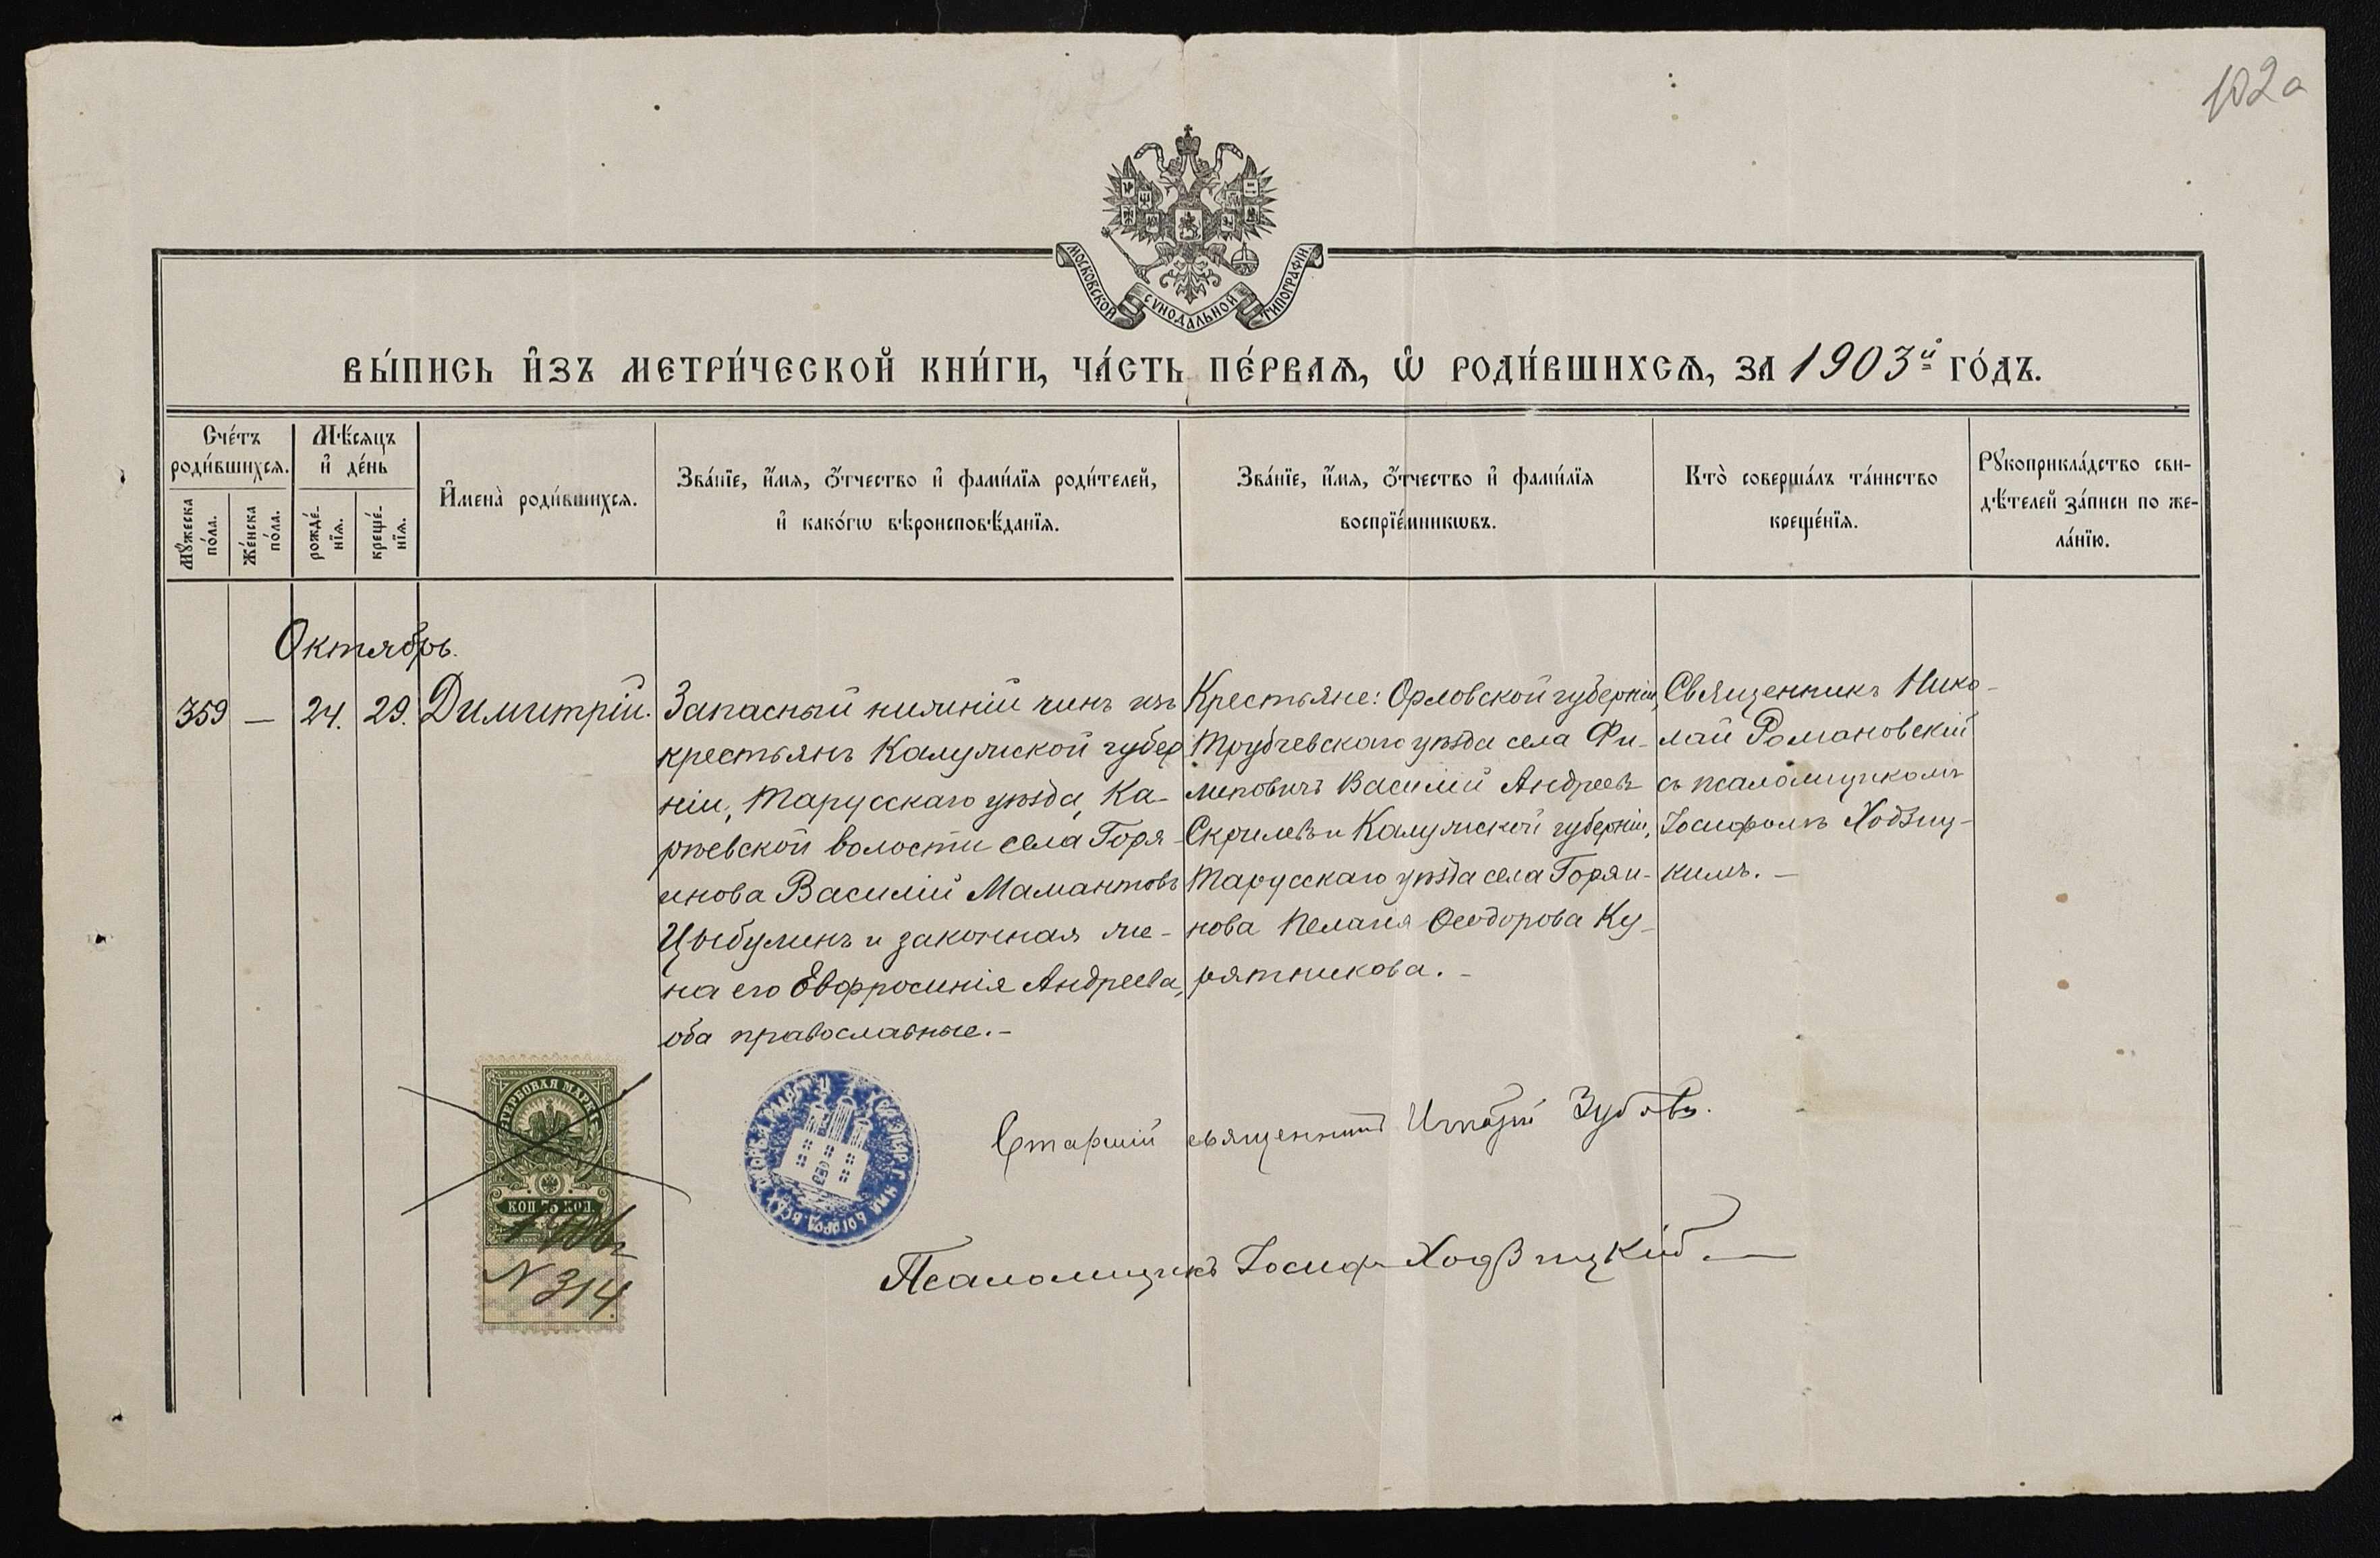 102а
МОСКОВСКОЙ СѴНОДАЛЬНОЙ ТИПОГРАФІИ.
ВЫ́ПИСЬ И҆ЗЪ МЕТРИ́ЧЕСКОЙ КНИ́ГИ, ЧА́СТЬ ПЕ́РВАѦ, Ѡ҆ РОДИ́ВШИХСѦ, ЗА 1903й ГО́ДЪ.
Сче́тъ роди́вшихсѧ.
Мꙋ́жеска по́ла.
Же́нска по́ла.
Мѣ́сѧцъ и҆ де́нь
рожде́нїѧ.
креще́нїѧ.
И҆мена̀ роди́вшихсѧ.
Зва́нїе, и҆́мѧ, ѻ҆́тчество и҆ фами́лїѧ роди́телей,
и҆ како́гѡ вѣроисповѣ́данїѧ.
Зва́нїе, и҆́мѧ, ѻ҆́тчество и҆ фами́лїѧ
воспрїе́мникѡвъ.
Кто̀ соверша́лъ та́инство
креще́нїѧ.
Рꙋкоприкла́дство сви-
дѣ́телей за́писи по же-
ла́нїю.
Октябрь.
359 — 24. 29. Димитрій.
Запасный нижній чинъ изъ
крестьянъ Калужской губер
ніи, Тарусскаго уѣзда, Ка-
ржевской волости села Горя-
инова Василій Мамантовъ
Цыбулинъ и законная же-
на его Евфросинія Андреева,
оба православные.–
Крестьяне: Орловской губерніи,
Трубчевскаго уѣзда села Фи-
липовичъ Василій Андреевъ
Скрилевъ и Калужской губерніи,
Тарусскаго уѣзда села Горяи-
нова Пелагія Ѳеодорова Ку-
рятникова.–
Священникъ Нико-
лай Романовскій
съ псаломщикомъ
Іосифомъ Ходзиц-
кимъ.–
ГЕРБОВАЯ МАРКА
75 КОП.
N 314.
Старшій священникъ Зубовъ.
Псаломщикъ Іосифъ Ходзицкій